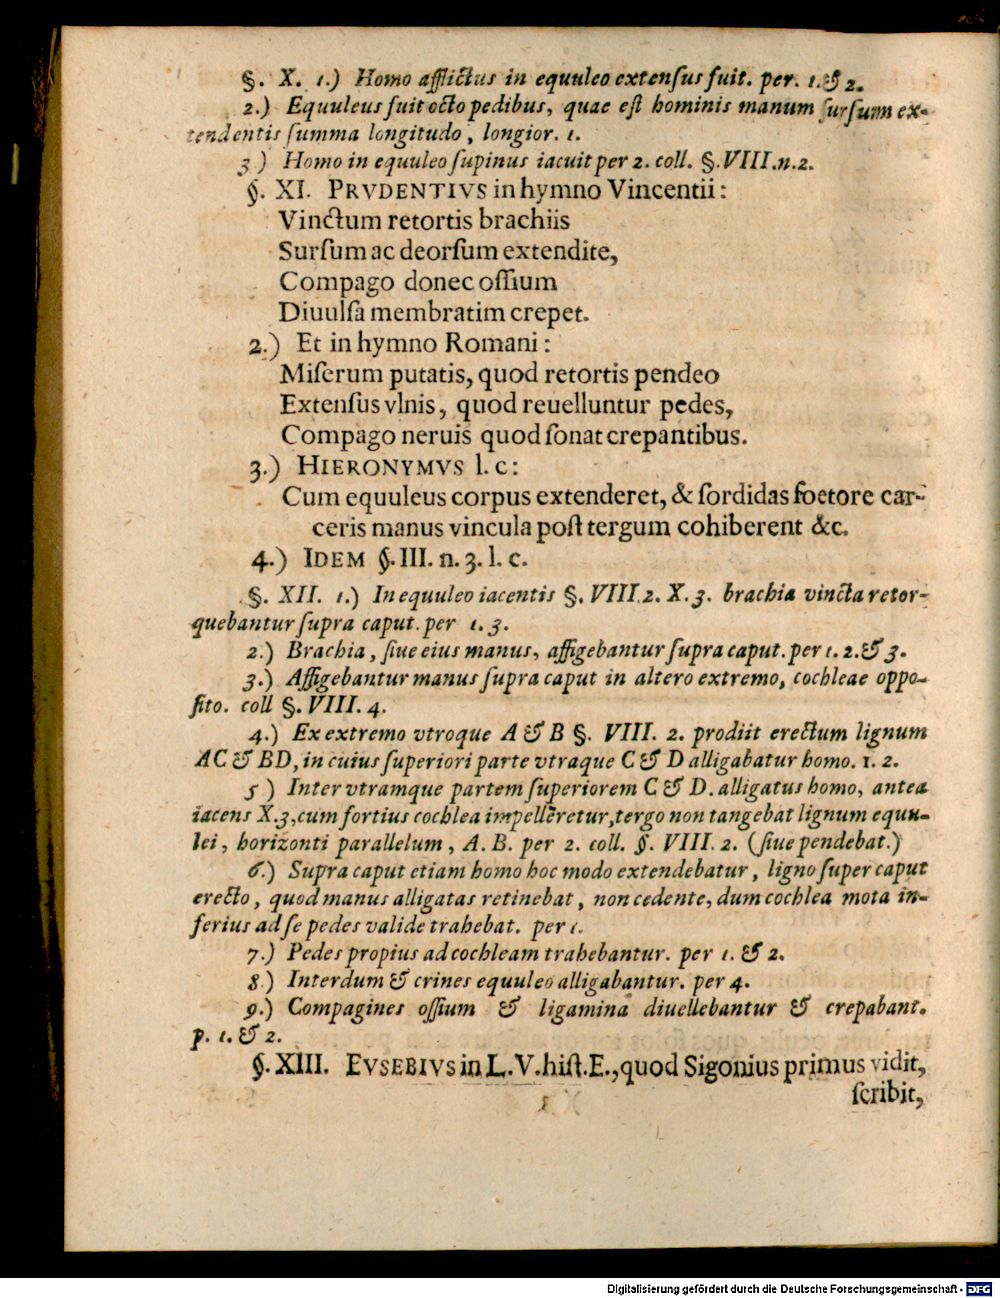 §. X. 1.) Homo afflictus in equuleo extenſus fuit. per. 1. & 2.
2.) Equuleus fuit octo pedibus, quae eſt hominis manum ſurſum ex-
tendentis ſumma longitudo, longior. 1.
3 ) Homo in equuleo ſupinus iacuit per 2. coll. §. VIII. n. 2.
§. XI. PRVDENTIVS in hymno Vincentii:
Vinctum retortis brachiis
Surſum ac deorſum extendite,
Compago donec oſſium
Diuulſa membratim crepet.
2.) Et in hymno Romani:
Miſerum putatis, quod retortis pendeo
Extenſus vlnis, quod reuelluntur pedes,
Compago neruis quod ſonat crepantibus.
3.) HIERONYMVS l. c:
Cum equuleus corpus extenderet, & ſordidas foetore car-
ceris manus vincula poſt tergum cohiberent &c.
4.) IDEM §. III. n. 3. l. c.
§. XII. 1.) In equuleo iacentis §. VIII. 2. X. 3. brachia vincta retor-
quebantur ſupra caput. per 1. 3.
2.) Brachia, ſiue eius manus, affigebantur ſupra caput. per 1. 2. & 3.
3.) Affigebantur manus ſupra caput in altero extremo, cochleae oppo-
ſito. coll §. VIII. 4.
4.) Ex extremo vtroque A & B §. VIII. 2. prodiit erectum lignum
AC & BD, in cuius ſuperiori parte vtraque C & D alligabatur homo. 1. 2.
5 ) Inter vtramque partem ſuperiorem C & D. alligatus homo, antea
iacens X. 3, cum fortius cochlea impelleretur, tergo non tangebat lignum equu-
lei, horizonti parallelum, A. B. per 2. coll. §. VIII. 2. (ſiue pendebat.)
6.) Supra caput etiam homo hoc modo extendebatur, ligno ſuper caput
erecto, quod manus alligatas retinebat, non cedente, dum cochlea mota in-
ferius ad ſe pedes valide trahebat. per 1.
7.) Pedes propius ad cochleam trahebantur. per 1. & 2.
8.) Interdum & crines equuleo alligabantur. per 4.
9.) Compagines oſſium & ligamina diuellebantur & crepabant.
p. 1. & 2.
§. XIII. EVSEBIVS in L. V. hiſt. E., quod Sigonius primus vidit,
ſcribit,
Digitalisierung gefördert durch die Deutsche Forschungsgemeinschaft - DFG